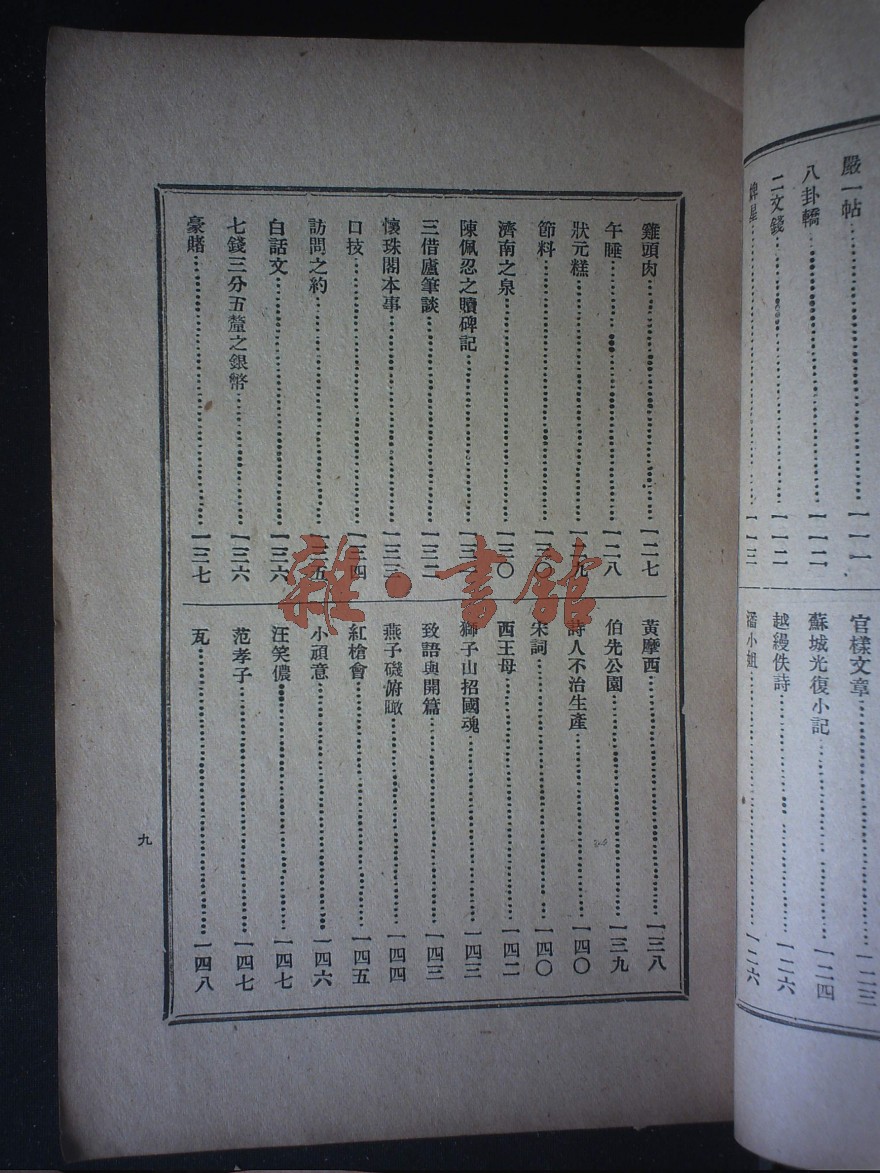 嚴一帖……一一一
八卦轎……一一二
二文錢……一一二
星……一一三
官樣文章……一二三
蘇城光復小記……一二四
越縵佚詩……一二六
潘小姐……一二六
雞頭肉……一二七
午睡……一二八
狀元糕……一二九
節料……一三〇
濟南之泉……一三〇
陳佩忍之贖碑記……一三一
三借廬筆談……一三二
懷珠閣本事……一三三
口技……一三四
訪問之約……一三五
白話文……一三六
七錢三分五釐之銀幣……一三六
豪賭……一三七
黃摩西……一三八
伯先公園……一三九
詩人不治生產……一四〇
宋詞……一四〇
西王母……一四二
獅子山招國魂……一四三
致語與開篇……一四三
燕子磯俯瞰……一四四
紅槍會……一四五
小頑意……一四六
汪笑儂……一四七
范孝子……一四七
瓦……一四八
九
雜·書館